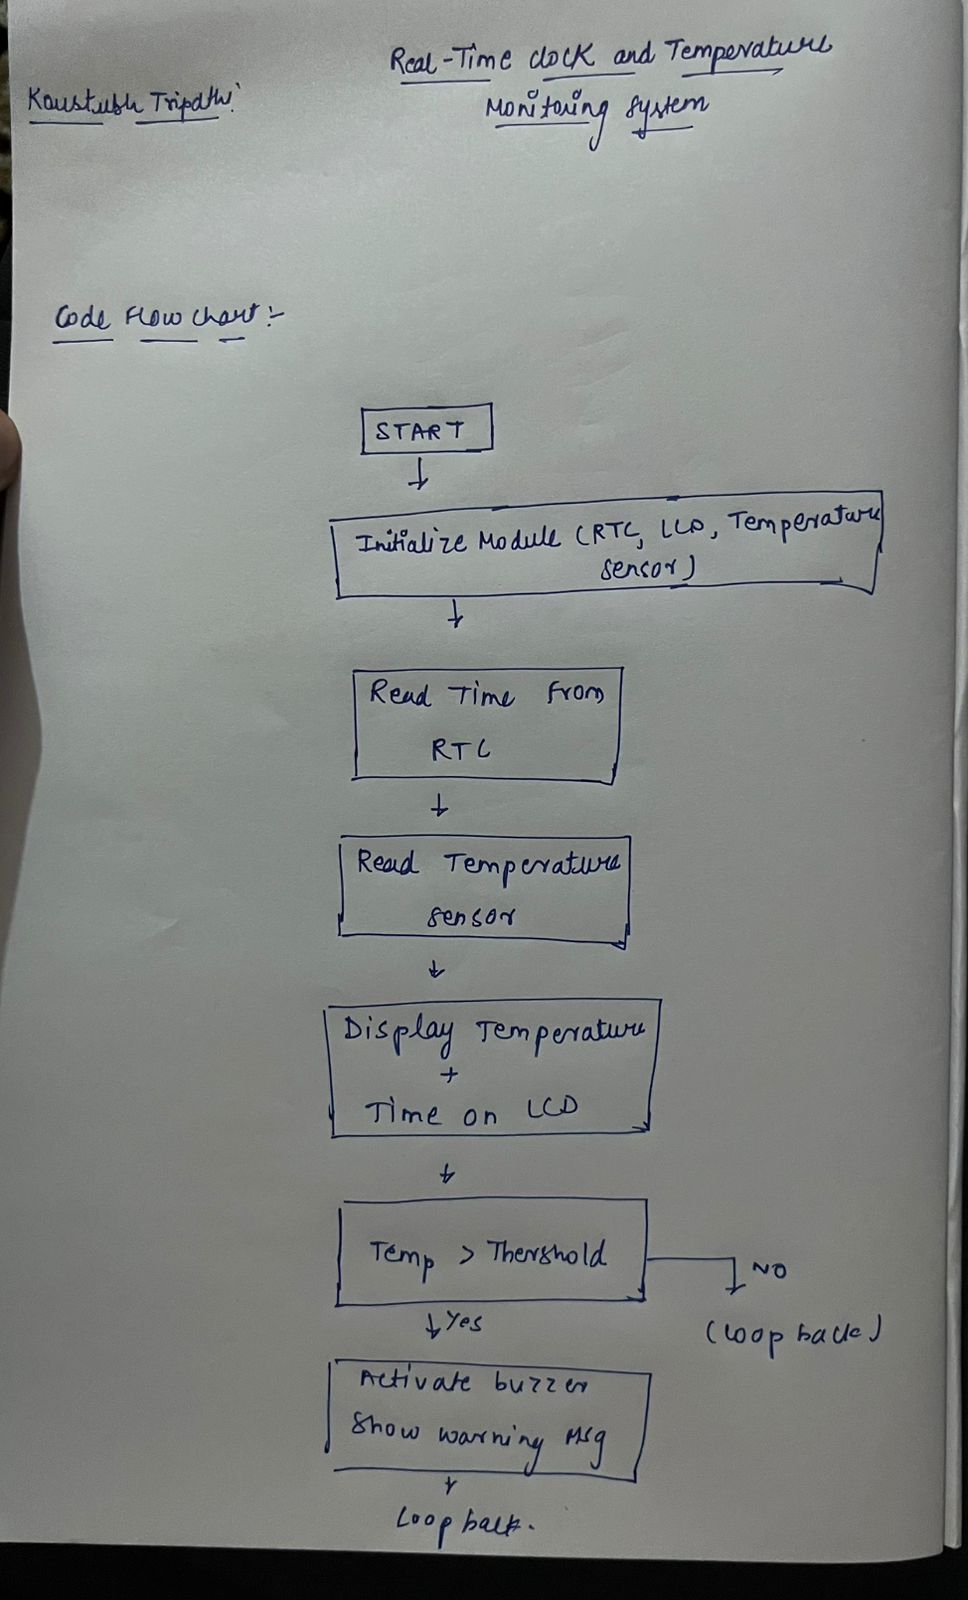 Real-Time clock and Temperature
Monitoring system
Kaustubh Tripathi
Code Flow chart :-
START
Initialize Module (RTC, LCD, Temperature
sensor)
Read Time From
RTC
Read Temperature
sensor
Display Temperature
+
Time on LCD
Temp > Thershold
NO
(Loop back)
Yes
Activate buzzer
Show warning Msg
Loop back.